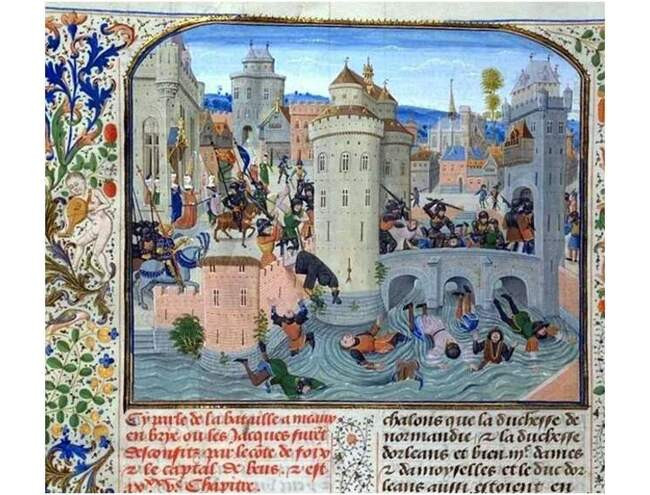 Cy parle de la bataille a meaux
en brye ou les Jacques furẽt
desconfis par le cõte de foix
& le captal de beus & est
Chapitre.
chalons que la duchesse de
normandie & la duchesse
dorleans et bien .iijc. dames
& damoyselles et le duc dor
leans aussi estoient en